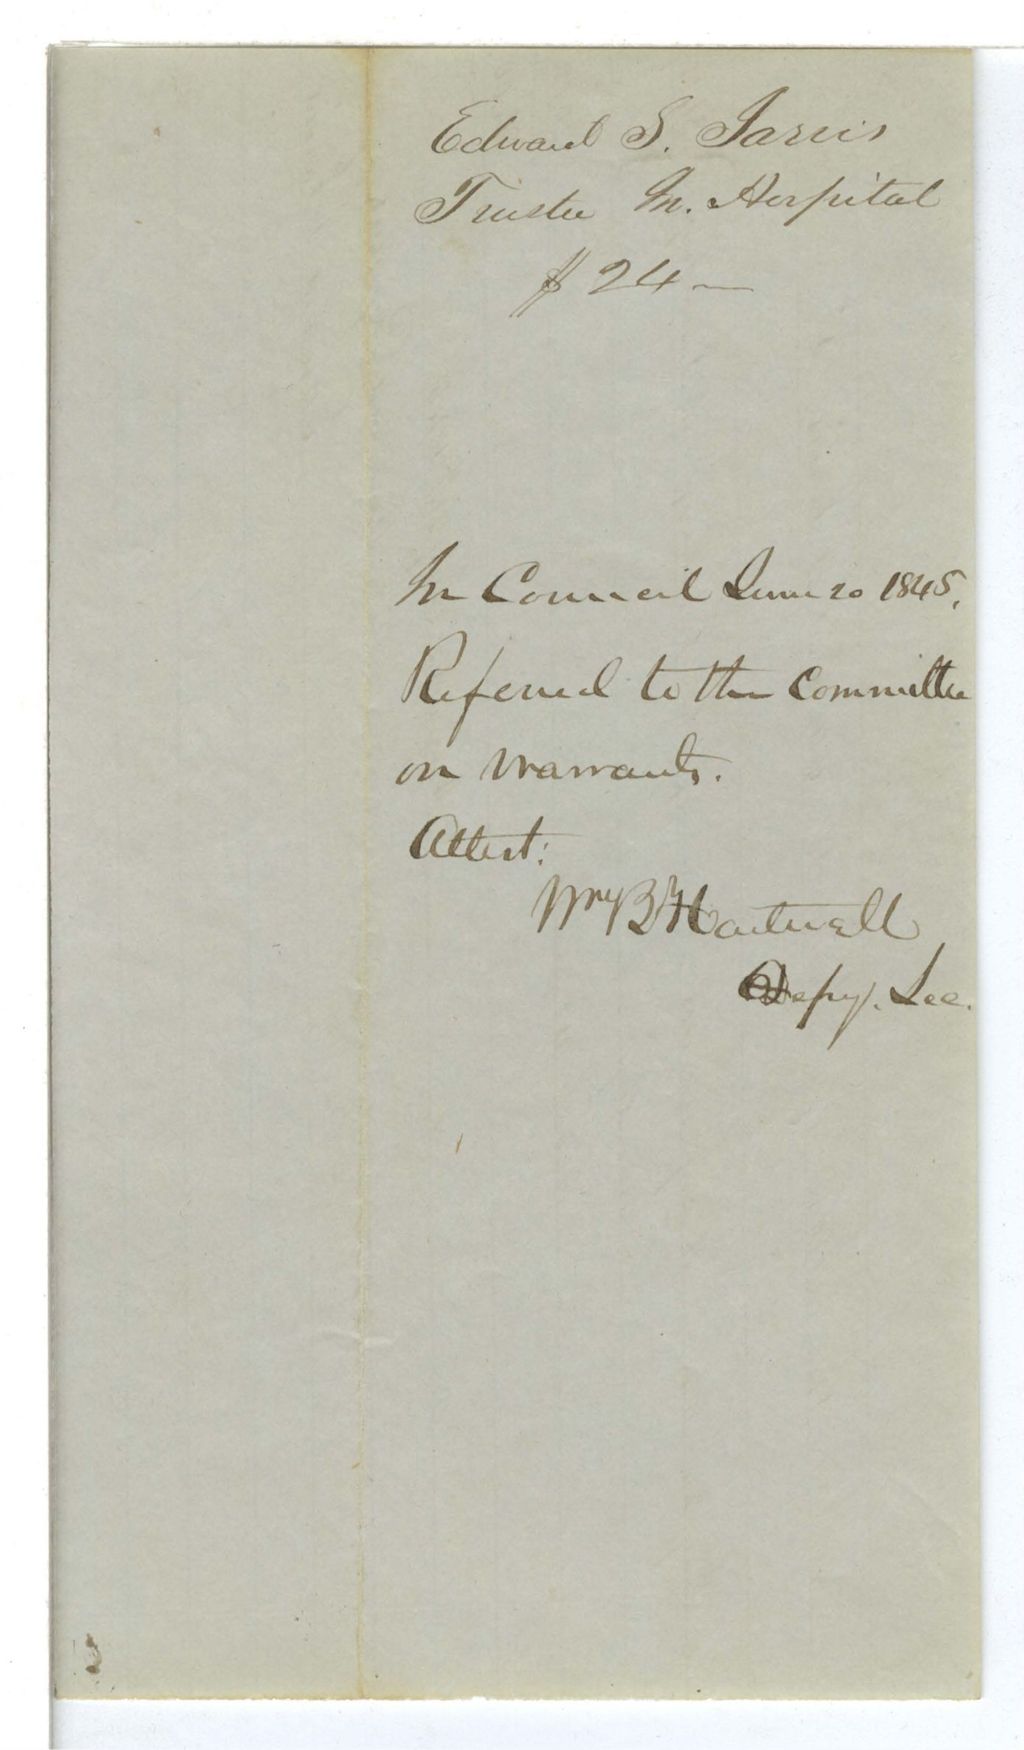 Edward S. Jarvis
Trustee In. Hospital
$24—
In Council June 20 1845.
Referred to the Committee
on Warrants.
Attest:
Wm B Hartwell
Depy. Sec.